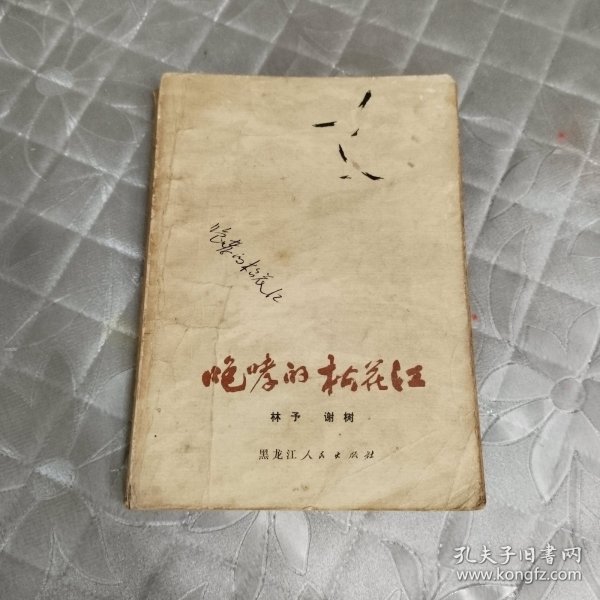 咆哮的松花江
咆哮的松花江
林予 谢树
黑龙江人民出版社
孔夫子旧书网
www.kongfz.com